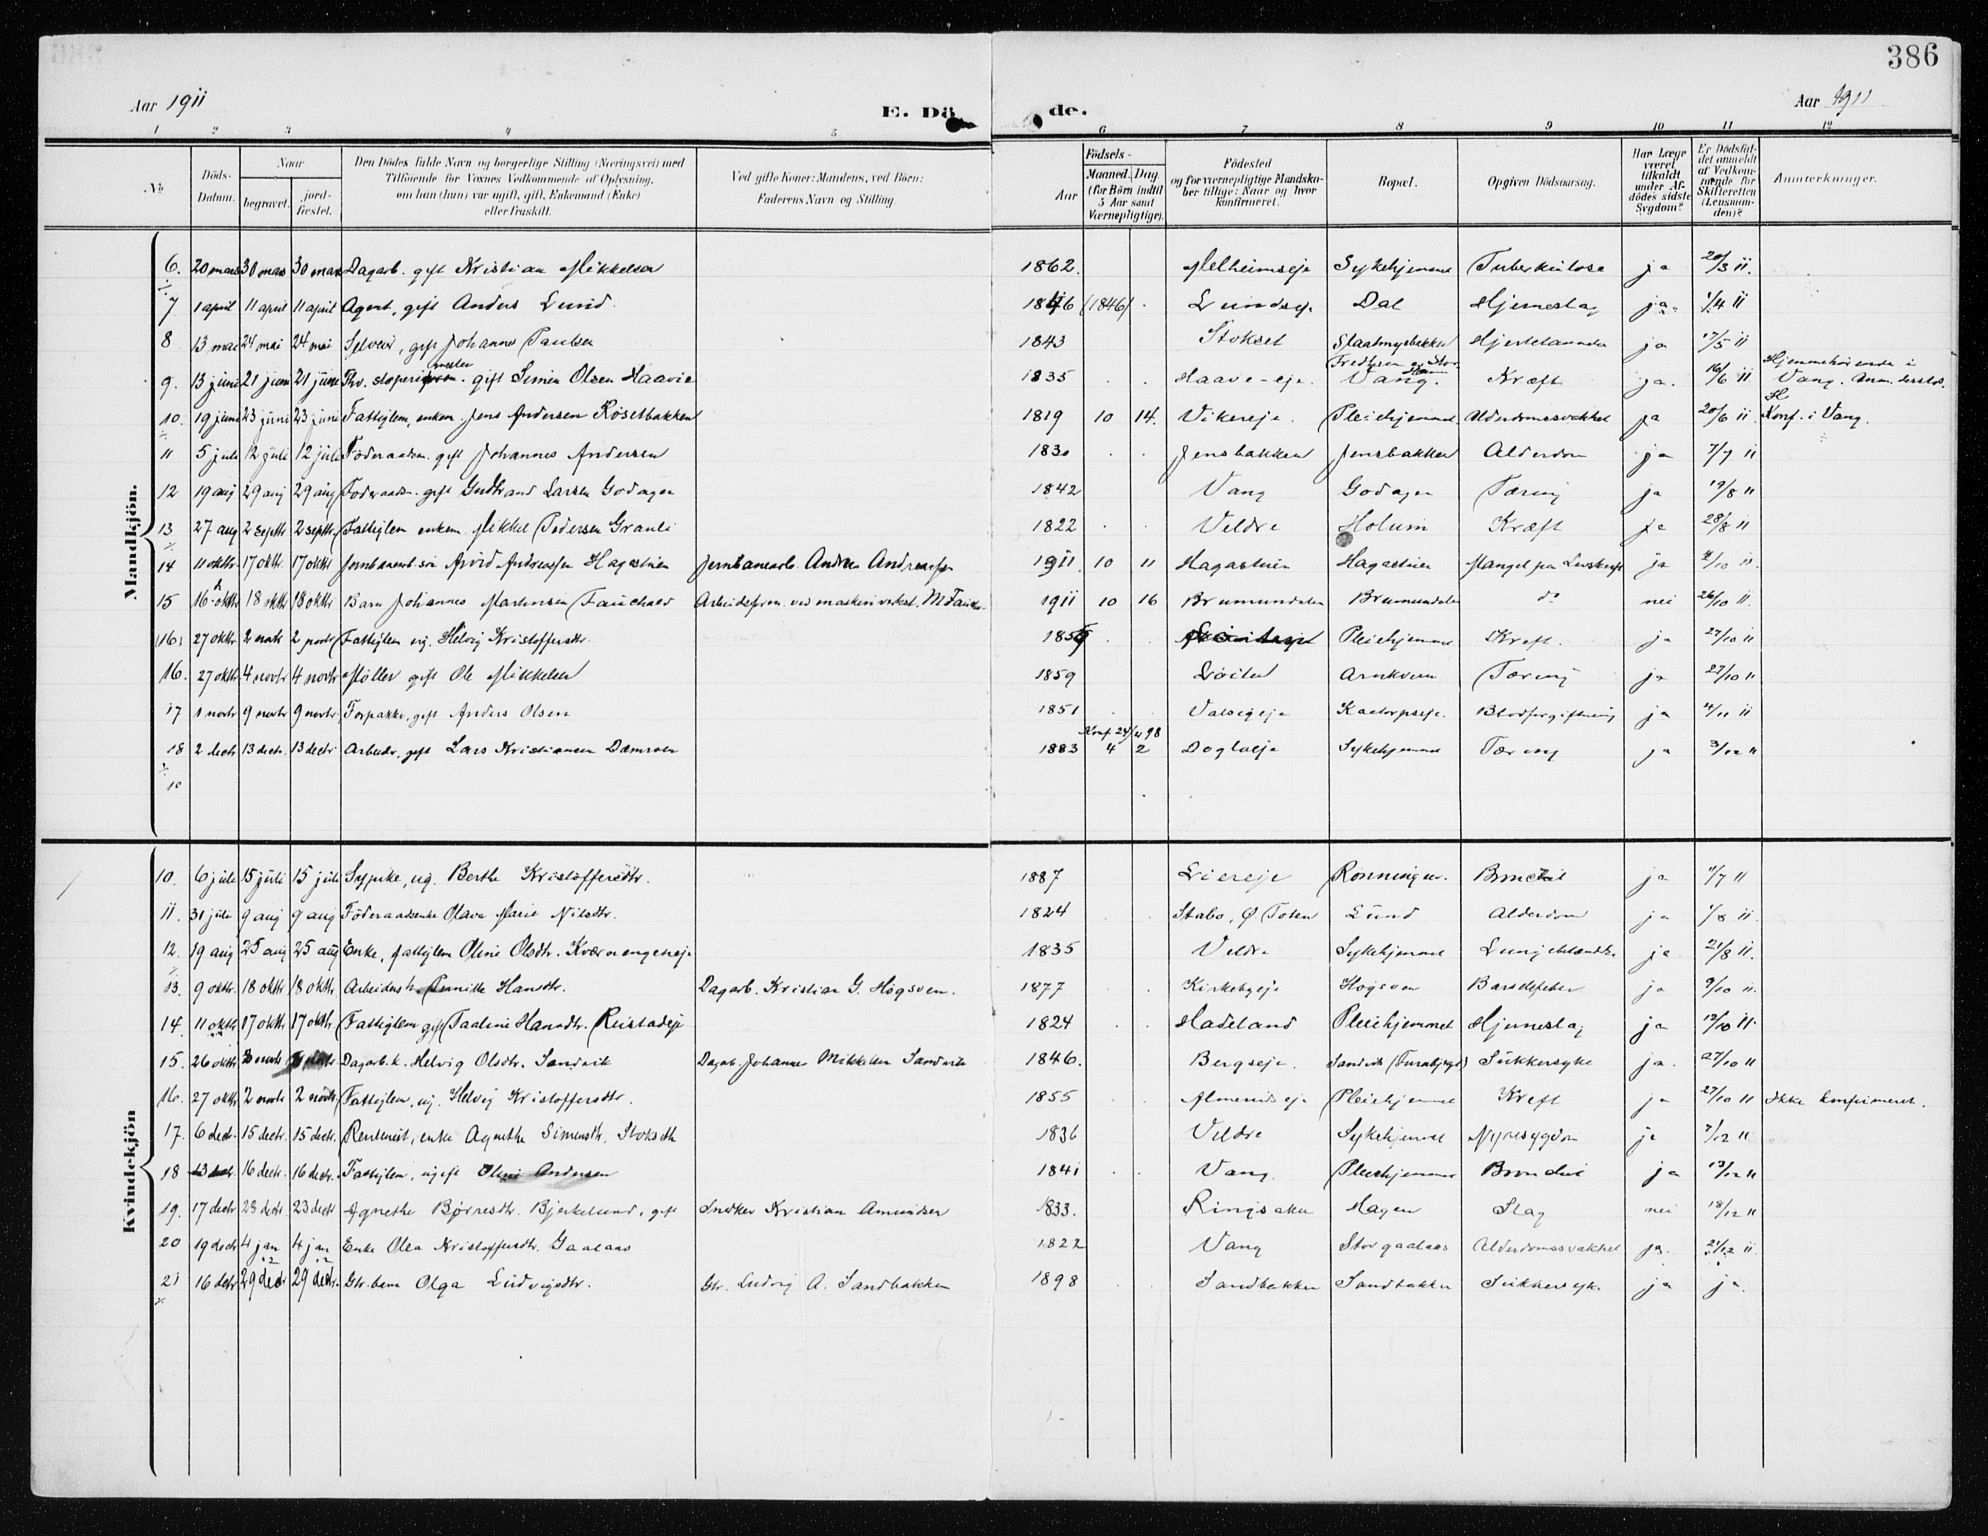 386
Aar 1911 E. Dö de. Aar 1911
1 2 3 4 5 6 7 8 9 10 11 12
No
Döds-Datum.
Naar
begravet.
jord-fæstet.
Den Dödes fulde Navn og borgerlige Stilling (Næringsvei) med
Tilföiende for Voxnes Vedkommende af Oplysning,
om han (hun) var ugift, gift, Enkemand (Enke)
eller fraskilt.
Ved gifte Koner: Mandens, ved Börn:
Faderens Navn og Stilling.
Födsels-
Aar
Maaned. Dag.
(for Börn indtil
5 Aar samt
Værnepligtige).
Födested
og for værnepligtige Mandska-
ber tillige: Naar og hvor
konfirmeret.
Bopæl.
Opgiven Dödsaarsag.
Har Læge
været
tilkaldt
under Af-
dödes sidste
Sygdom?
Er Dödsfal-
det anmeldt
af Vedkom-
mende for
Skifteretten
(Lensman-
den)?
Anmærkninger.
Mandkjön.
6. 20 mars 30 mars 30 mars Dagarb. gift Kristian Mikkelsen 1862. Melheimseje Sykehjemmet Tuberkulose ja 20/3 11.
7 1 april 11 april 11 april Agent, gift Anders Lund. 1846 (1846) Lundseje Dal Hjerneslag ja 1/4 11
8 13 mai 24 mai 24 mai Selveier, gift Johannes Paulsen 1843 Stokset Staalmyrbakken Hjertelammelse ja 17/5 11
9. 13 juni 21 juni 21 juni Fhv. støperimester gift Simen Olsen Haavie 1835 Haave-eje. Vang. Kræft ja. 16/6 11 Hjemmehørende i
Vang. Anm. dersteds.
10. 19 juni 23 juni 23 juni Fattiglem, enkem. Jens Andersen Rösetbakken 1819 10 14. Vikereje. Pleiehjemmet Alderdomssvakhet ja 20/6 11 Konf. i Vang.
11 5 juli 12 juli 12 juli Föderaadsm. gift Johannes Andersen 1830 Jensbakken Jensbakken Alderdom ja 7/7 11
12 19 aug 29 aug 29 aug Föderaadsm. gift Gudbrand Larsen Godager 1842 Vang Godager Tæring ja 19/8 11
13 27 aug 2 septbr 2 septbr. Fattiglem enkem. Mikkel Pedersen Granli 1822 Veldre Holum Kræft ja 28/8 11
14 11 oktbr. 17 oktbr. 17 oktbr Jernbanearb. søn Arvid Andreassen Hagastuen Jernbanearb. Andreas Andreassen 1911. 10 11 Hagastuen Hagastuen Mangel paa Livskraft ja 11/10 11.
15 16 oktbr 18 oktbr 18 oktbr Barn Johannes Martinsen Fauchald Arbeidsform. ved maskinverkst. M. Fauch. 1911 10 16 Brumundalen Brumundalen do nei 26/10 11.
(16) 27 oktbr 2 novbr 2 novbr Fattiglem ug. Helvig Kristoffersdtr. Pleiehjemmet Kræft. ja 27/10 11
16. 27 oktbr 4 novbr 4 novbr Møller gift Ole Mikkelsen 1859 Löiten Arnkvern Tæring ja 27/10 11
17 1 novbr 9 novbr 9 novbr. Forpakter, gift Anders Olsen 1851 Valsegeje Kaatorpseje. Blodforgiftning ja 4/11 11
Konf 24/4 98
18 2 decbr 13 decbr. 13 decbr Arbeider, gift Lars Kristiansen Dæmroen 1883 4 2 Dogloeje Sykehjemmet Tæring ja 3/12 11
19
Kvindekjön
10. 6 juli 15 juli 15 juli Sypike, ug. Berthe Kristoffersdtr. 1887 Liereje Rønningen. Bronchit ja 11/7 11
11. 31 juli 9 aug 9 aug Föderaadsenke Olava Marie Nilsdtr. 1824 Stabo, Ø Toten Lund Alderdom ja 1/8 11.
12. 19 aug 25 aug 25 aug Enke, fattiglem Oline Olsdtr. Kværnengeneje 1835 Veldre Sykehjemmet Lungebetændelse ja 21/8 11.
13. 9 oktbr. 18 oktbr 18 oktbr Arbeidersh. Pernille Hansdtr. Dagarb. Kristian G. Högsveen. 1877 Kirkebyeje Högsveen Barselfeber ja 9/10 11.
14. 11 oktbr 17 oktbr 17 oktbr. Fattiglem gift Paaline Hansdtr. Reistadeje 1824 Hadeland Pleiehjemmet Hjerneslag ja 12/10 11.
15. 26 oktbr 3 novbr Dagarb.k. Helvig Olsdtr. Sandvik Dagarb. Johannes Mikkelsen Sandvik 1846. Bergseje. Sandvik (Furnbjergs) Sukkersyke ja. 27/10 11
16. 27 oktbr 2 novbr 2 novbr Fattiglem, ug. Helvig Kristoffersdtr. 1855 Almenindseje Pleiehjemmet Kræft ja 27/10 11 Ikke konfirmeret.
17. 6 decbr. 15 decbr. 15 decbr. Rentenist, enke Agnethe Simensdtr. Stokseth 1836 Veldre Sykehjemmet Nyresygdom ja 7/12 11
18 13 decbr 16 decbr. 16 decbr. Fattiglem, ugift Oline Andersen 1841 Vang Pleiehjemmet Bronchit ja 13/12 11
19. 17 decbr 23 decbr 23 decbr Agnethe Børresdtr. Bjerkelund, gift Snedker Kristian Amundsen 1833. Ringsaker Hagen Slag nei 18/12 11
20 19 decbr 4 jan 12 4 jan 12 Enke Olea Kristoffersdtr. Gaalaas 1822 Vang Storgaalaas Alderdomssvakhet ja. 21/12 11.
21 16 decbr 29 decbr 29 decbr. Gbr. barn Olga Ludvigsdtr. Gbr. Ludvig A. Sandbakken 1898 Sandbakken Sandbakken Sukkersyke. ja ja.